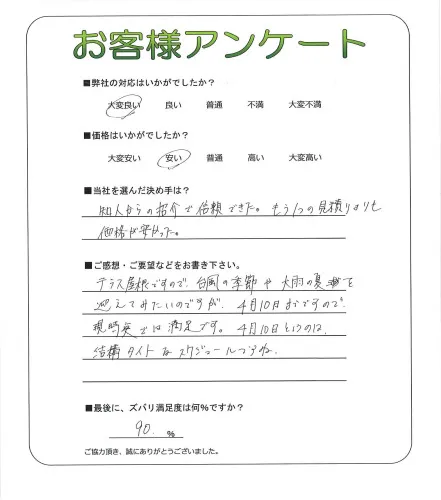 お客様アンケート
■弊社の対応はいかがでしたか？
大変良い 良い 普通 不満 大変不満
■価格はいかがでしたか？
大変安い 安い 普通 高い 大変高い
■当社を選んだ決め手は？
知人からの紹介で依頼できた。もう1つの見積りよりも
価格が安かった。
■ご感想・ご要望などをお書き下さい。
テラス屋根ですので、台風の季節や大雨の夏を
迎えてみたいのですが、4月10日までですので、
現時点では満足です。4月10日というのは、
結構タイトなスケジュールですね。
■最後に、ズバリ満足度は何%ですか？
90. %
ご協力頂き、誠にありがとうございました。